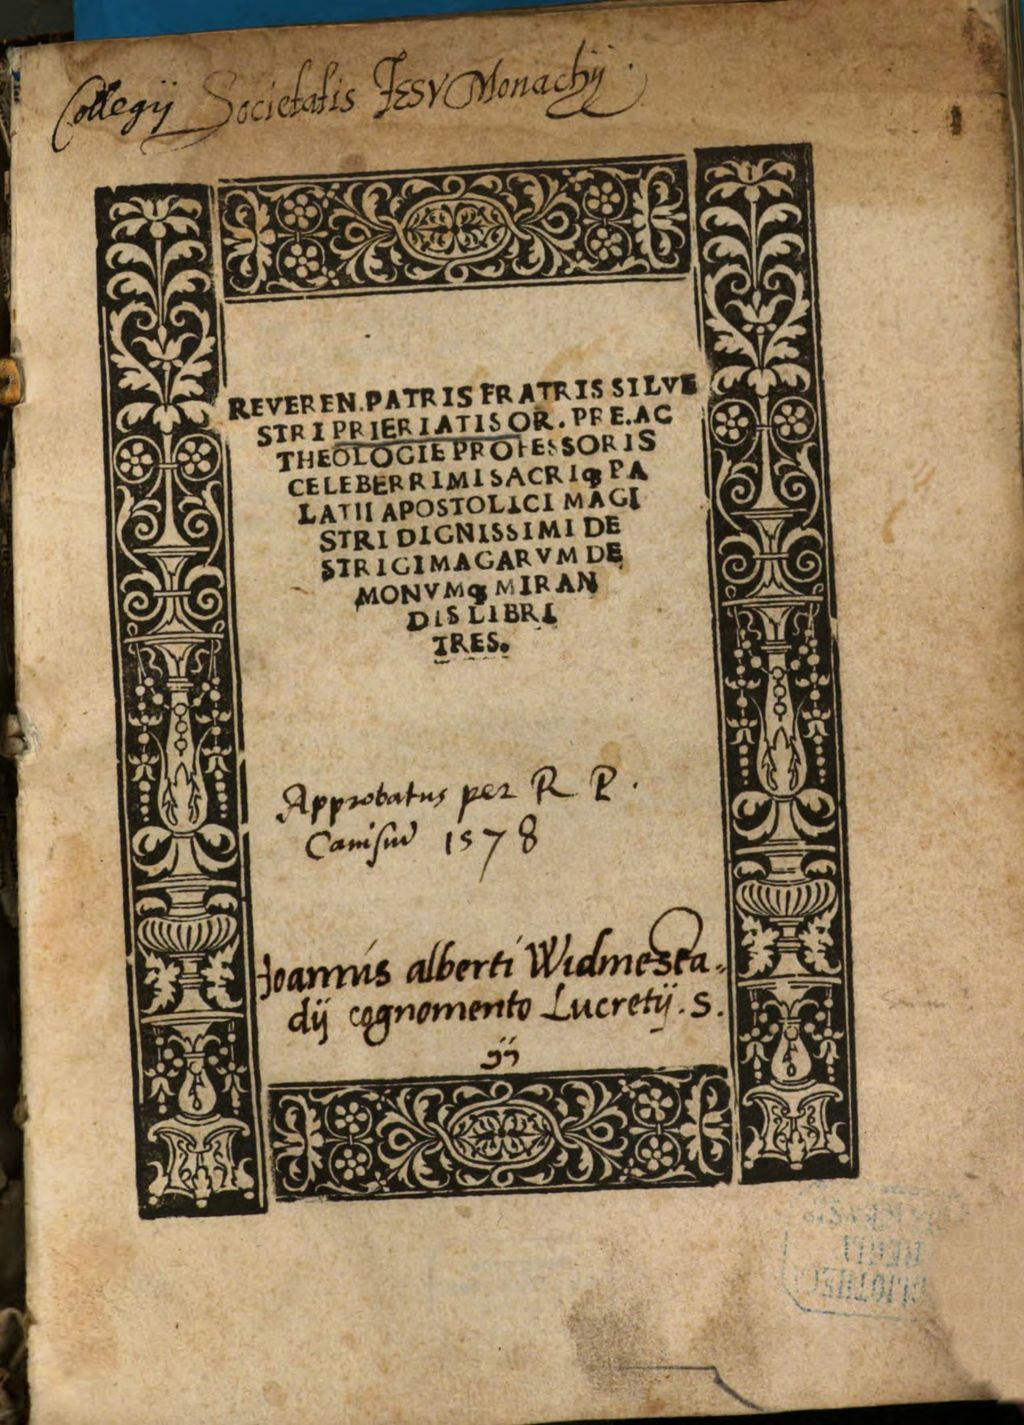 Collegij Societatis IESV Monachij.
REVEREN.PATRIS FRATRIS SILVE
STRI PRIERIATIS OR. PRE. AC
THEOLOGIE PROFESSORIS
CELEBERRIMI SACRIqꝫ PA
LATII APOSTOLICI MAGI
STRI DIGNISSIMI DE
STRIGIMAGARVM DE
MONVMqꝫ MIRAN
DIS LIBRI
TRES.
Approbatus per R P.
Canisiū 1578
Joannis alberti Widmesta-
dij cognomento Lucretij. S.
REGI